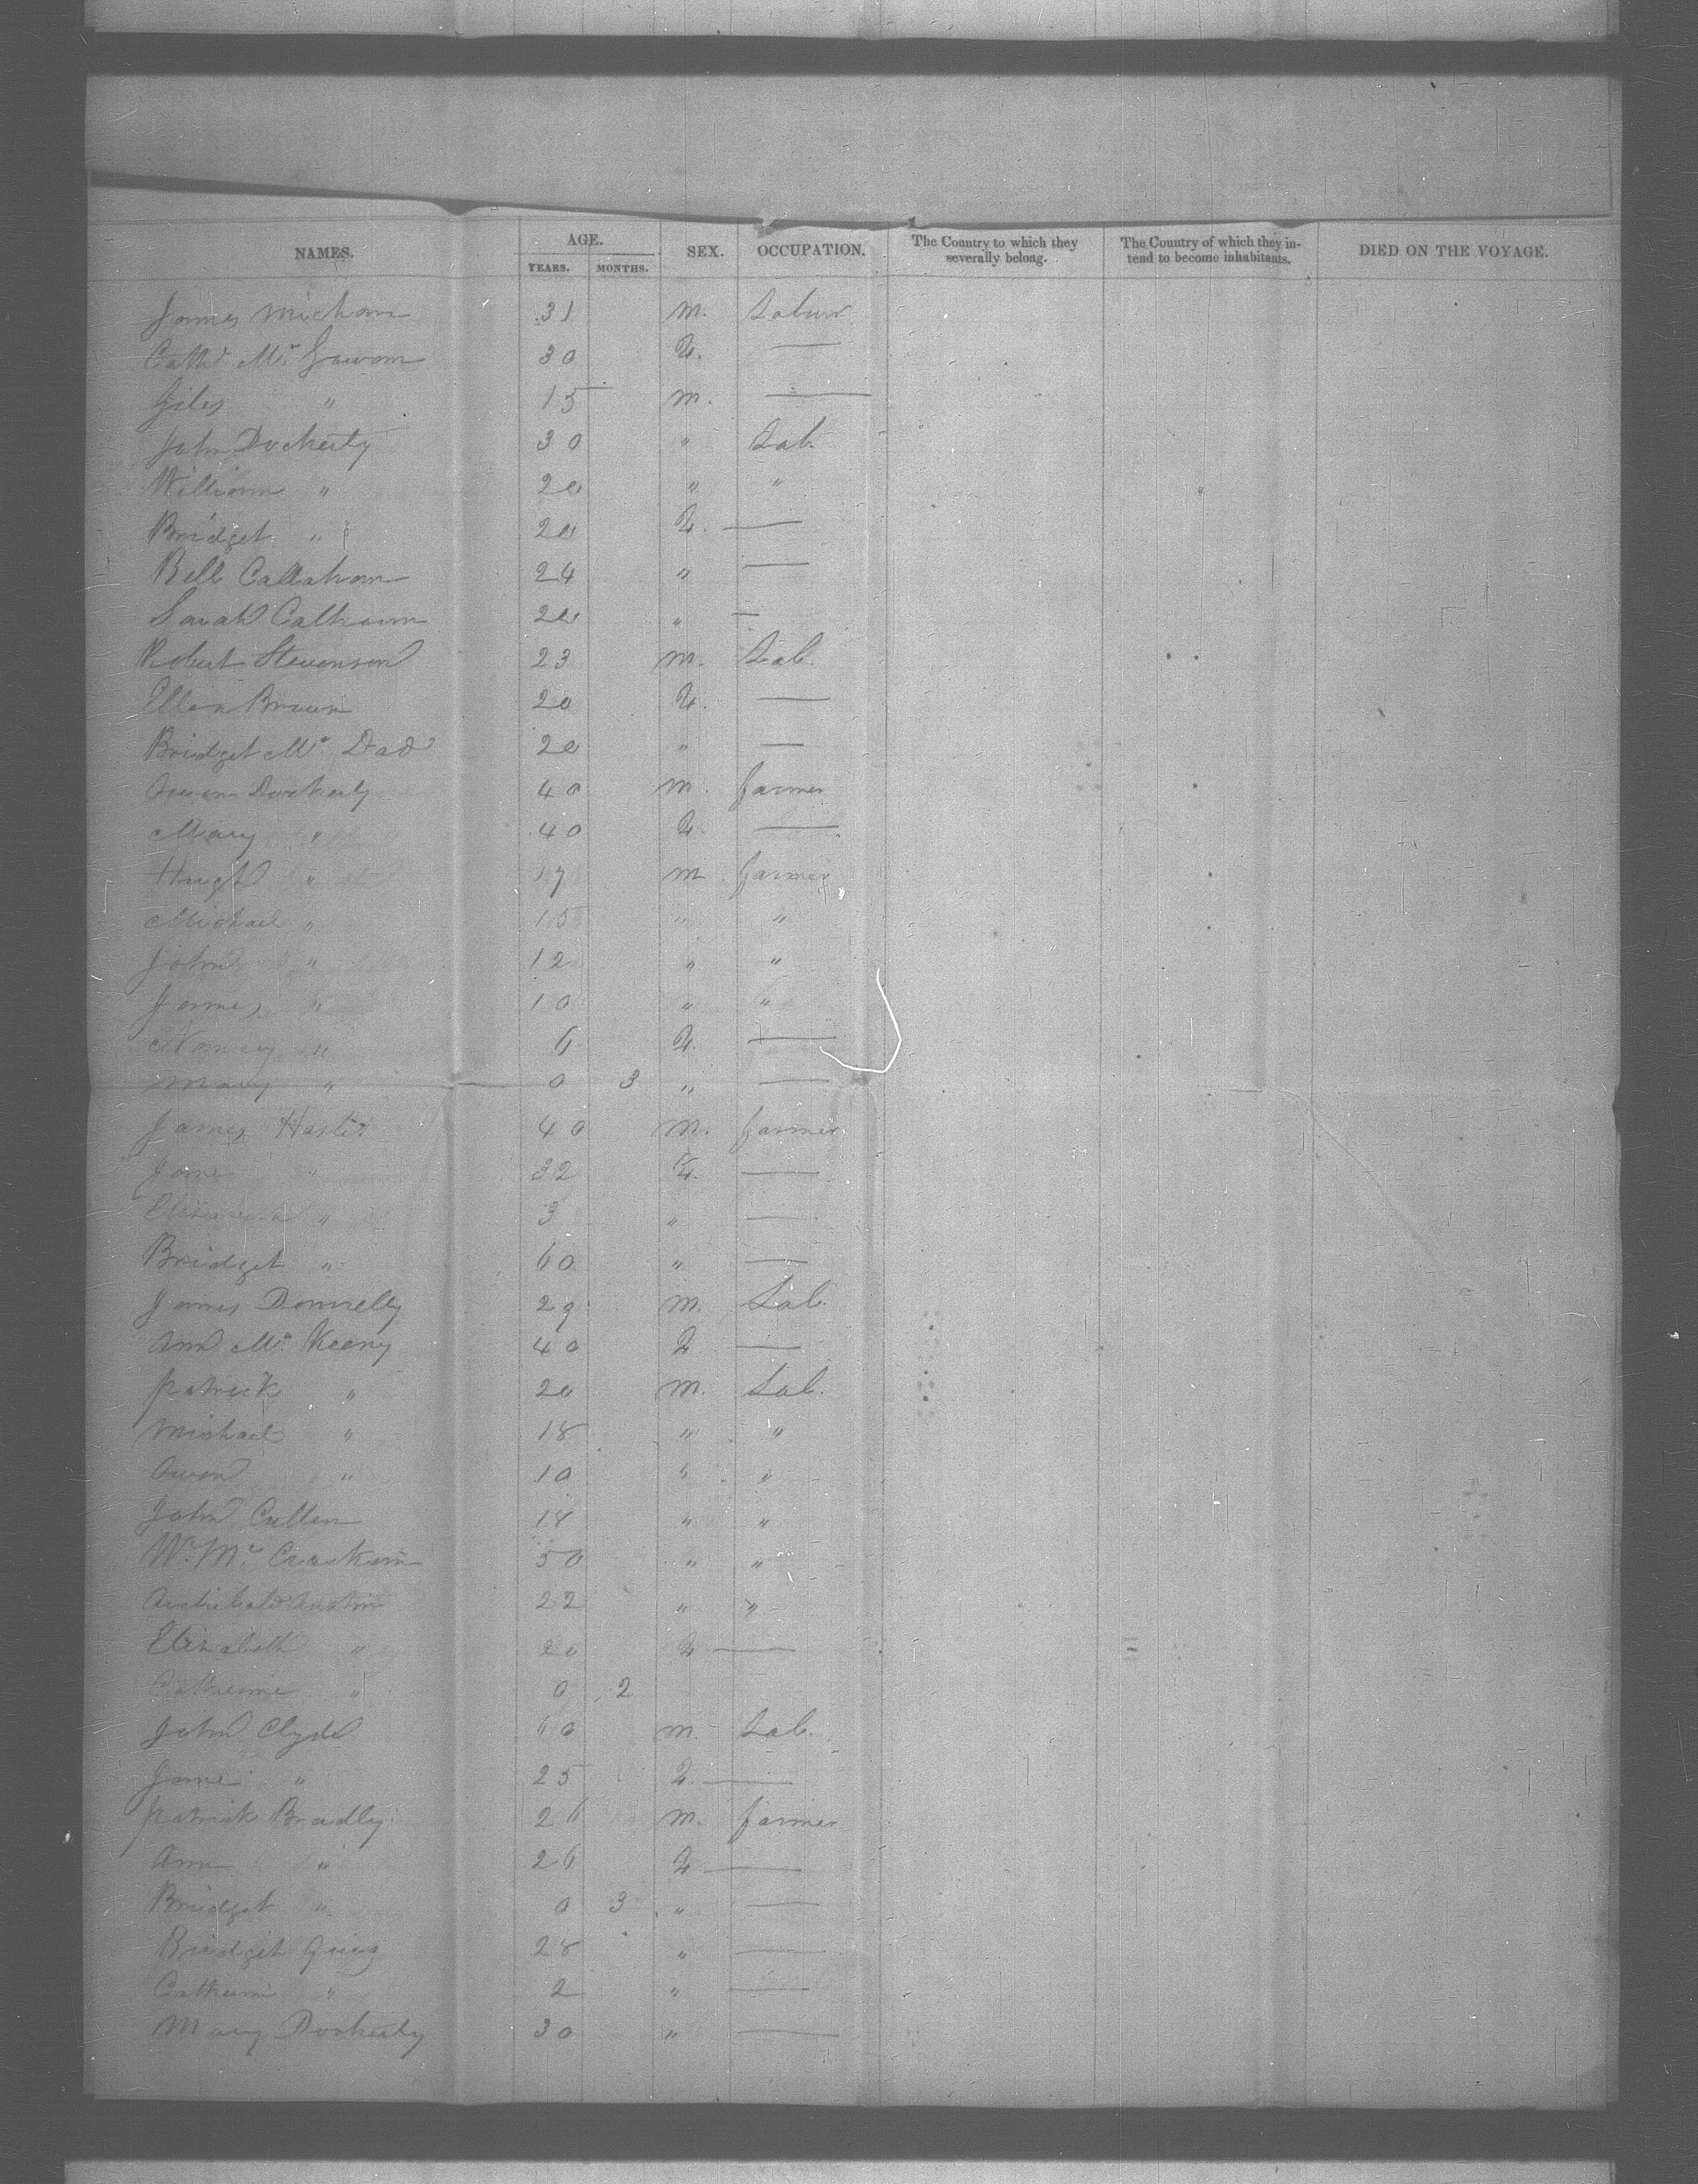 NAMES. AGE. YEARS. MONTHS. SEX. OCCUPATION. The Country to which they severally belong. The Country of which they in-tend to become inhabitants. DIED ON THE VOYAGE.
James 31 m. Labour
Cath.e Mc. 30 F. —
Giles " 15 m. —
John Docherty 30 " Lab.
William " 20 " "
Bridget " 20 F. —
Bell Callahan 24 " —
Sarah Calhoun 20 " —
Robert Stevenson 23 m. Lab.
Ellen Brown 20 F. —
Bridget Mc. Dad 20 " —
Owen Docherty 40 m. farmer
Mary " 40 F. —
Hugh " 17 m. farmer
Michael " 15 " "
John " 12 " "
James " 10 " "
Nancy " 6 F. —
Mary " 0 3 " —
James 40 m. farmer
Jane " 32 F. —
" 3 " —
Bridget " 60 " —
James Donnelly 29 m. Lab.
Ann Mc. Keeny 40 F. —
Patrick " 20 m. Lab.
Michael " 18 " "
Owen " 10 " "
John Cullen 18 " "
Wm. Mc. 50 " "
Archibald Austin 22 " "
Elizabeth " 20 F. —
Catherine " 0 2
John Clyde 60 m. Lab.
Jane " 25 F. —
Patrick Bradly 26 m. farmer
Ann " 26 F. —
Bridget " 0 3 " —
Bridget Quig 28 " —
Catherine " 2 " —
Mary Docherty 30 " —